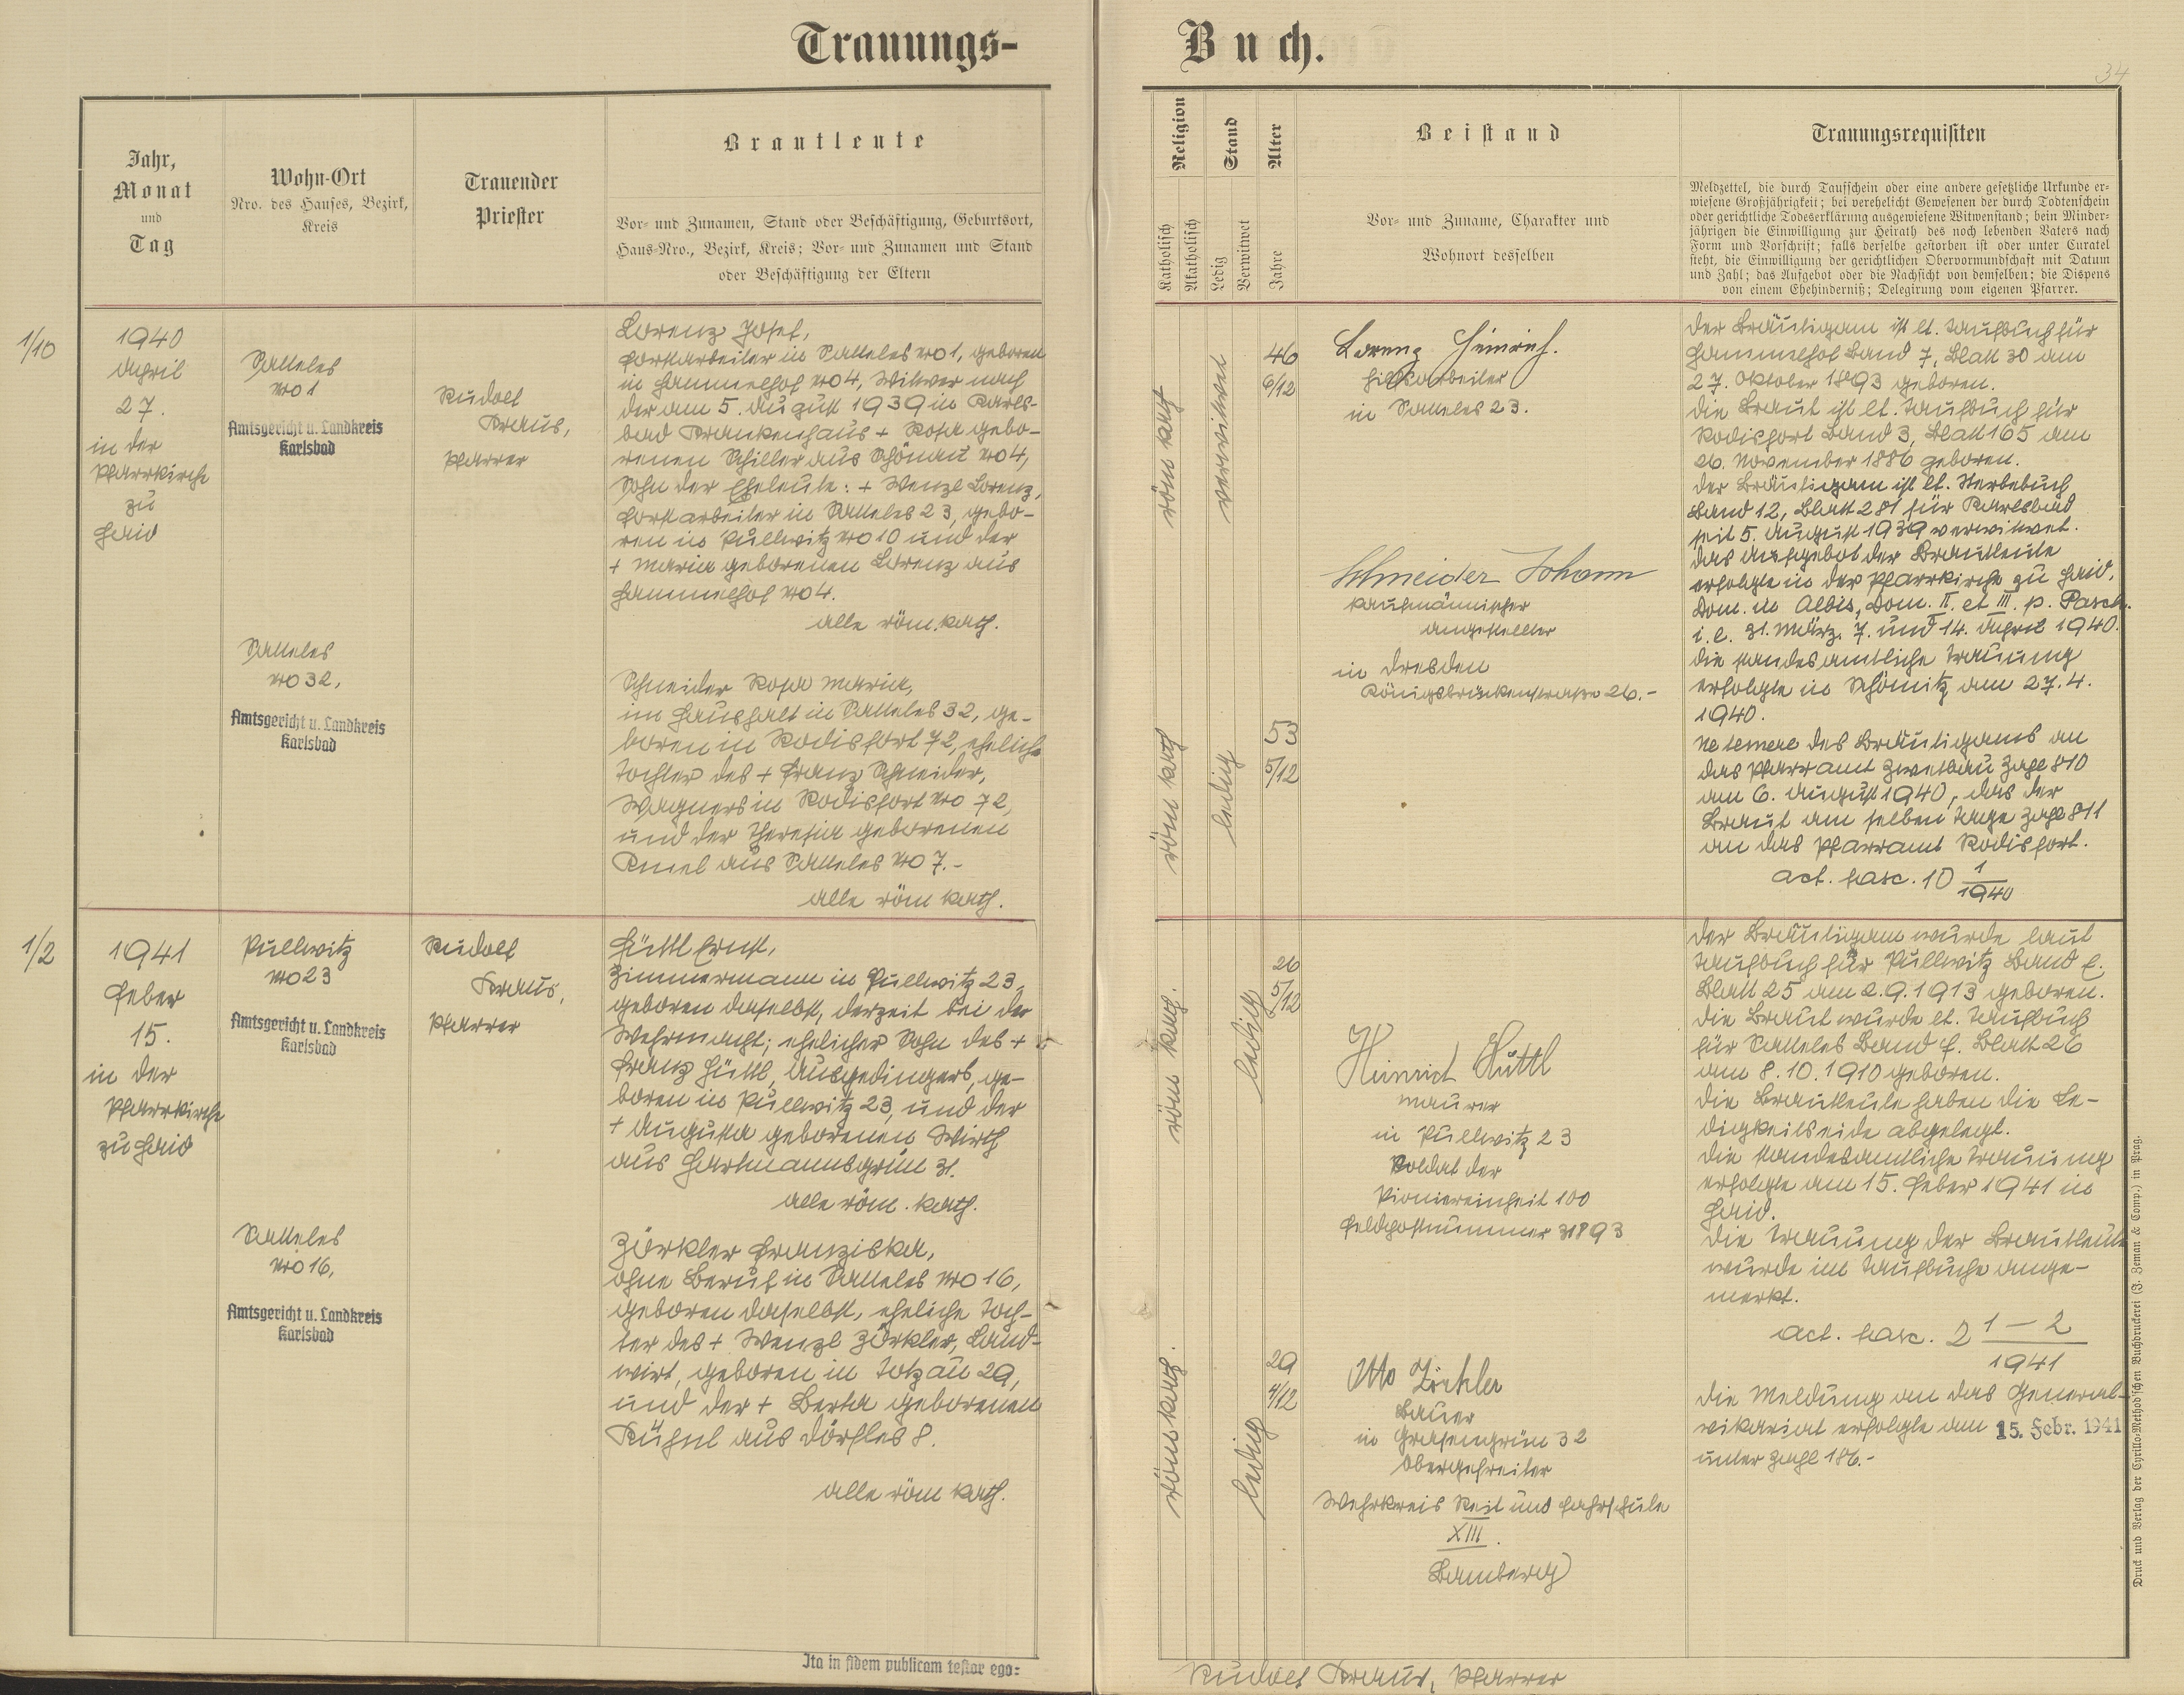 Trauungs-
Buch.
34
Jahr,
Monat
und
Tag
Wohn-Ort
Nro. des Hauses, Bezirk,
Kreis
Trauender
Priester
Brautleute
Vor- und Zunamen, Stand oder Beschäftigung, Geburtsort,
Haus-Nro., Bezirk, Kreis; Vor- und Zunamen und Stand
oder Beschäftigung der Eltern
Religion
Katholisch
Akatholisch
Stand
Ledig
Verwitwet
Alter
Jahre
Beistand
Vor- und Zuname, Charakter und
Wohnort desselben
Trauungsrequisiten
Meldzettel, die durch Taufschein oder eine andere gesetzliche Urkunde er-
wiesene Großjährigkeit; bei verehelicht Gewesenen der durch Todtenschein
oder gerichtliche Todeserklärung ausgewiesene Witwenstand; beim Minder-
jährigen die Einwilligung zur Heirath des noch lebenden Vaters nach
Form und Vorschrift; falls derselbe gestorben ist oder unter Curatel
steht, die Einwilligung der gerichtlichen Obervormundschaft mit Datum
und Zahl; das Aufgebot oder die Nachsicht von demselben; die Dispens
von einem Ehehinderniß; Delegirung vom eigenen Pfarrer.
1/10
1940
April
27.
in der
Pfarrkirche
zu
Haid
Satteles
No 1
Amtsgericht u. Landkreis
Karlsbad
Rudolf
Kraus,
Pfarrer
Lorenz Josef,
Forstarbeiter in Satteles No 1, geboren
in Hammelhof No 4, Witwer nach
der am 5. August 1939 in Karls-
bad Krankenhaus + Rosa gebo-
renen Schiller aus Schönau No 4,
Sohn der Eheleute: + Wenzl Lorenz,
Forstarbeiter in Satteles 23, gebo-
ren in Pullwitz No 10 und der
+ Maria geborenen Lorenz aus
Hammelhof No 4.
alle röm. kath.
Satteles
No 32,
Amtsgericht u. Landkreis
Karlsbad
Schneider Rosa Maria,
im Haushalt in Satteles 32, ge-
boren in Rodisfort 72, eheliche
Tochter des + Franz Schneider,
Wagners in Rodisfort No 72,
und der Theresia geborenen
aus Satteles No 7.-
alle röm kath.
röm kath
verwitwet
46
6/12
Lorenz Heinrich.
Hilfsarbeiter
in Satteles 23.
röm kath
ledig
53
5/12
Schneider Johann
kaufmännischer
Angestellter
in Dresden
Königsbrückenstraße 26.-
Der Bräutigam ist lt. Taufbuch für
Hammelhof Band 7, Blatt 30 am
27. Oktober 1893 geboren.
Die Braut ist lt. Taufbuch für
Rodisfort Band 3, Blatt 165 am
26. November 1886 geboren.
Der Bräutigam ist lt. Sterbebuch
Band 12, Blatt 281 für Karlsbad
seit 5. August 1939 verwitwet.
Das Aufgebot der Brautleute
erfolgte in der Pfarrkirche zu Haid,
Dom. in Albis, Dom. II. et III. p. Pasch.
i. e. 31. März, 7. und 14. April 1940.
Die standesamtliche Trauung
erfolgte in Schömitz am 27. 4.
1940.
Ne temere des Bräutigams an
das Pfarramt Zwetbau Zahl 810
am 6. August 1940, das der
Braut am selben Tage Zahl 811
an das Pfarramt Rodisfort.
act. fasc. 10 1/1940
1/2
1941
Feber
15.
in der
Pfarrkirche
zu Haid
Pullwitz
No 23
Amtsgericht u. Landkreis
Karlsbad
Rudolf
Kraus,
Pfarrer
Hüttl Ernst,
Zimmermann in Pullwitz 23,
geboren daselbst, derzeit bei der
Wehrmacht; ehelicher Sohn des +
Franz Hüttl, Ausgedingers, ge-
boren in Pullwitz 23, und der
+ Augusta geborenen Wirth
aus Hartmannsgrün 31.
alle röm. kath.
Satteles
No 16,
Amtsgericht u. Landkreis
Karlsbad
Zörkler Franziska,
ohne Beruf in Satteles No 16,
geboren daselbst, eheliche Toch-
ter des + Wenzl Zörkler, Land-
wirt, geboren in Totzau 29,
und der + Berta geborenen
Kühnl aus Dörfles 8.
alle röm kath.
röm kath.
ledig
26
5/12
Heinrich Hüttl
Maurer
in Pullwitz 23
Soldat der
Pioniereinheit 100
Feldpostnummer 31893
röm kath.
ledig
29
4/12
Otto Zörkler
Bauer
in Grasengrün 32
Obergefreiter
Wehrkreis Reit und Fahrschule
XIII.
Bamberg
Der Bräutigam wurde laut
Taufbuch für Pullwitz Band f.
Blatt 25 am 2.9.1913 geboren.
Die Braut wurde lt. Taufbuch
für Satteles Band f. Blatt 26
am 8.10.1910 geboren.
Die Brautleute haben die Le-
digkeitseide abgelegt.
Die standesamtliche Trauung
erfolgte am 15. Feber 1941 in
Haid.
Die Trauung der Brautleute
wurde im Taufbuche ange-
merkt.
act. fasc. 2 1-2/1941
Die Meldung an das General-
vikariat erfolgte am 15. Febr. 1941
unter Zahl 186.-
Ita in fidem publicam testor ego:
Rudolf Kraus, Pfarrer
Druck und Verlag der Cyrillo-Method'schen Buchdruckerei (J. Zeman & Comp.) in Prag.